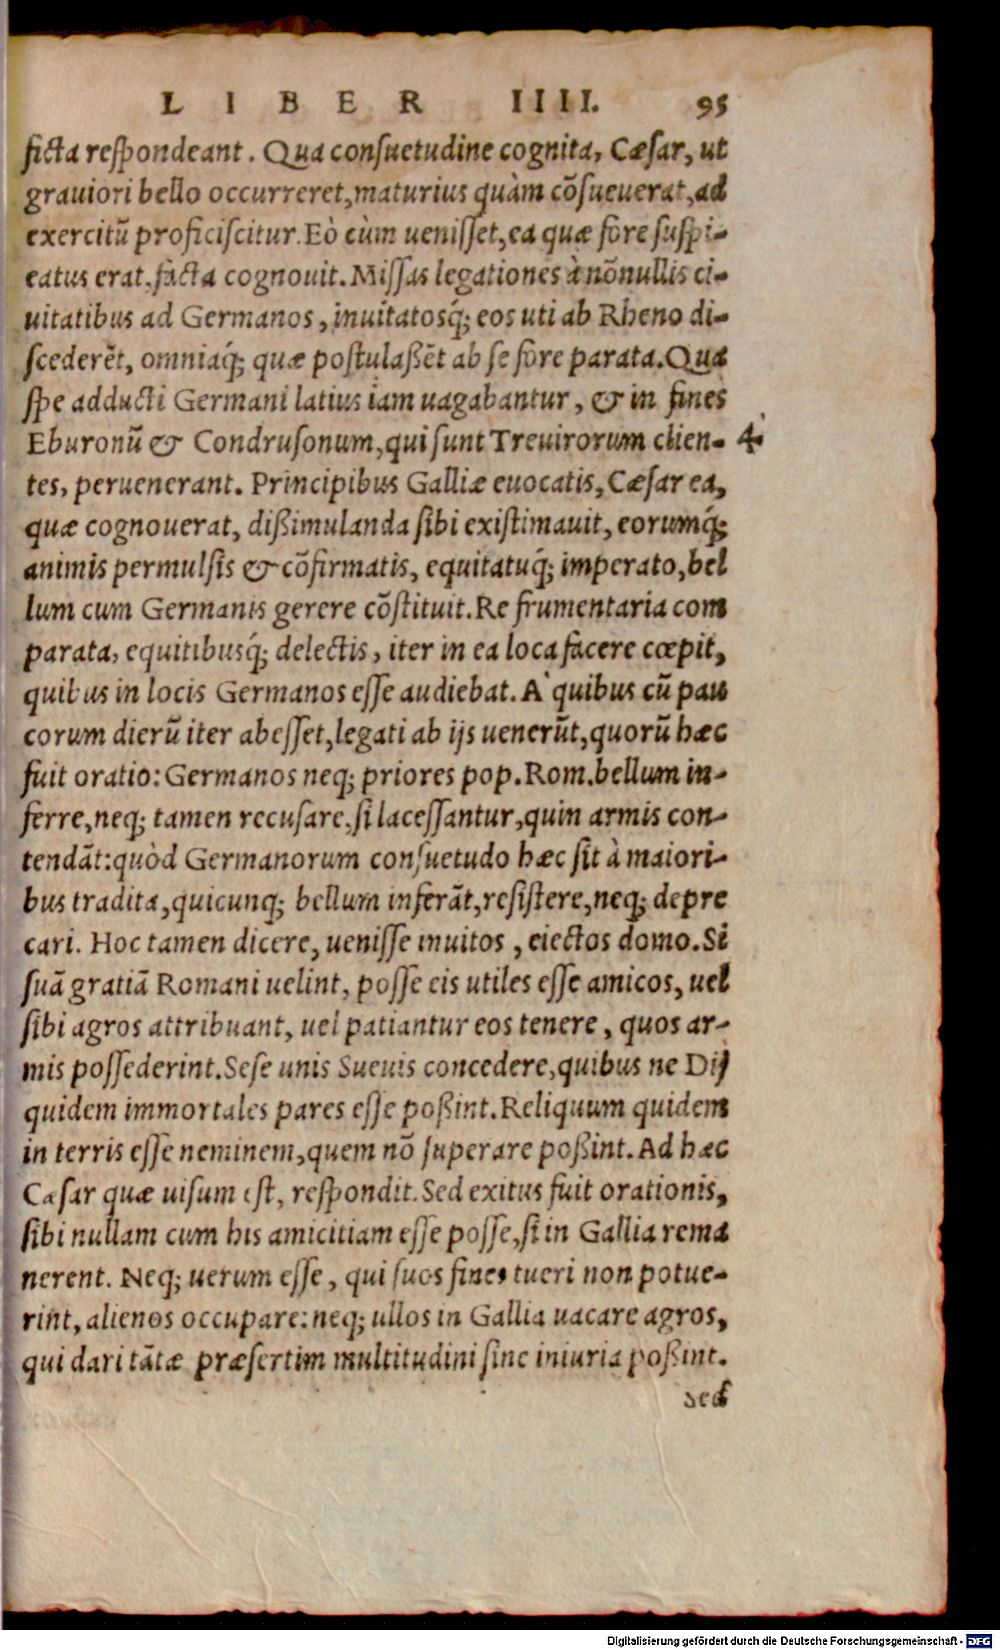 LIBER IIII. 95
ficta respondeant. Qua consuetudine cognita, Cæsar, ut
grauiori bello occurreret, maturius quàm cõsueuerat, ad
exercitũ proficiscitur. Eò cùm uenisset, ea quæ fore suspi-
catus erat, facta cognouit. Missas legationes à nõnullis ci-
uitatibus ad Germanos, inuitatosq́; eos uti ab Rheno di-
scederẽt, omniaq́; quæ postulaßẽt ab se fore parata. Qua
spe adducti Germani latius iam uagabantur, & in fines
Eburonũ & Condrusonum, qui sunt Treuirorum clien- 4.
tes, peruenerant. Principibus Galliæ euocatis, Cæsar ea,
quæ cognouerat, dißimulanda sibi existimauit, eorumq́;
animis permulsis & cõfirmatis, equitatuq́; imperato, bel
lum cum Germanis gerere cõstituit. Re frumentaria com
parata, equitibusq́; delectis, iter in ea loca facere cœpit,
quibus in locis Germanos esse audiebat. A' quibus cũ pau
corum dierũ iter abesset, legati ab ijs uenerũt, quorũ hæc
fuit oratio: Germanos neq; priores pop. Rom. bellum in-
ferre, neq; tamen recusare, si lacessantur, quin armis con-
tendãt: quòd Germanorum consuetudo hæc sit à maiori-
bus tradita, quicunq; bellum inferãt, resistere, neq; depre
cari. Hoc tamen dicere, uenisse inuitos, eiectos domo. Si
suã gratiã Romani uelint, posse eis utiles esse amicos, uel
sibi agros attribuant, uel patiantur eos tenere, quos ar-
mis possederint. Sese unis Sueuis concedere, quibus ne Dij
quidem immortales pares esse poßint. Reliquum quidem
in terris esse neminem, quem nõ superare poßint. Ad hæc
Cæsar quæ uisum est, respondit. Sed exitus fuit orationis,
sibi nullam cum his amicitiam esse posse, si in Gallia rema
nerent. Neq; uerum esse, qui suos fines tueri non potue-
rint, alienos occupare: neq; ullos in Gallia uacare agros,
qui dari tãtæ præsertim multitudini sine iniuria poßint.
sed
Digitalisierung gefördert durch die Deutsche Forschungsgemeinschaft - DFG